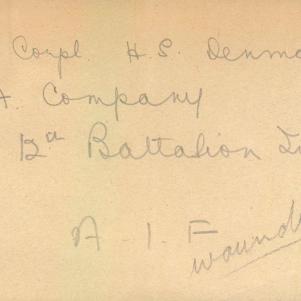 Corpl H. S. Denm
A. Company
12th Battalion In
A. I. F
wound